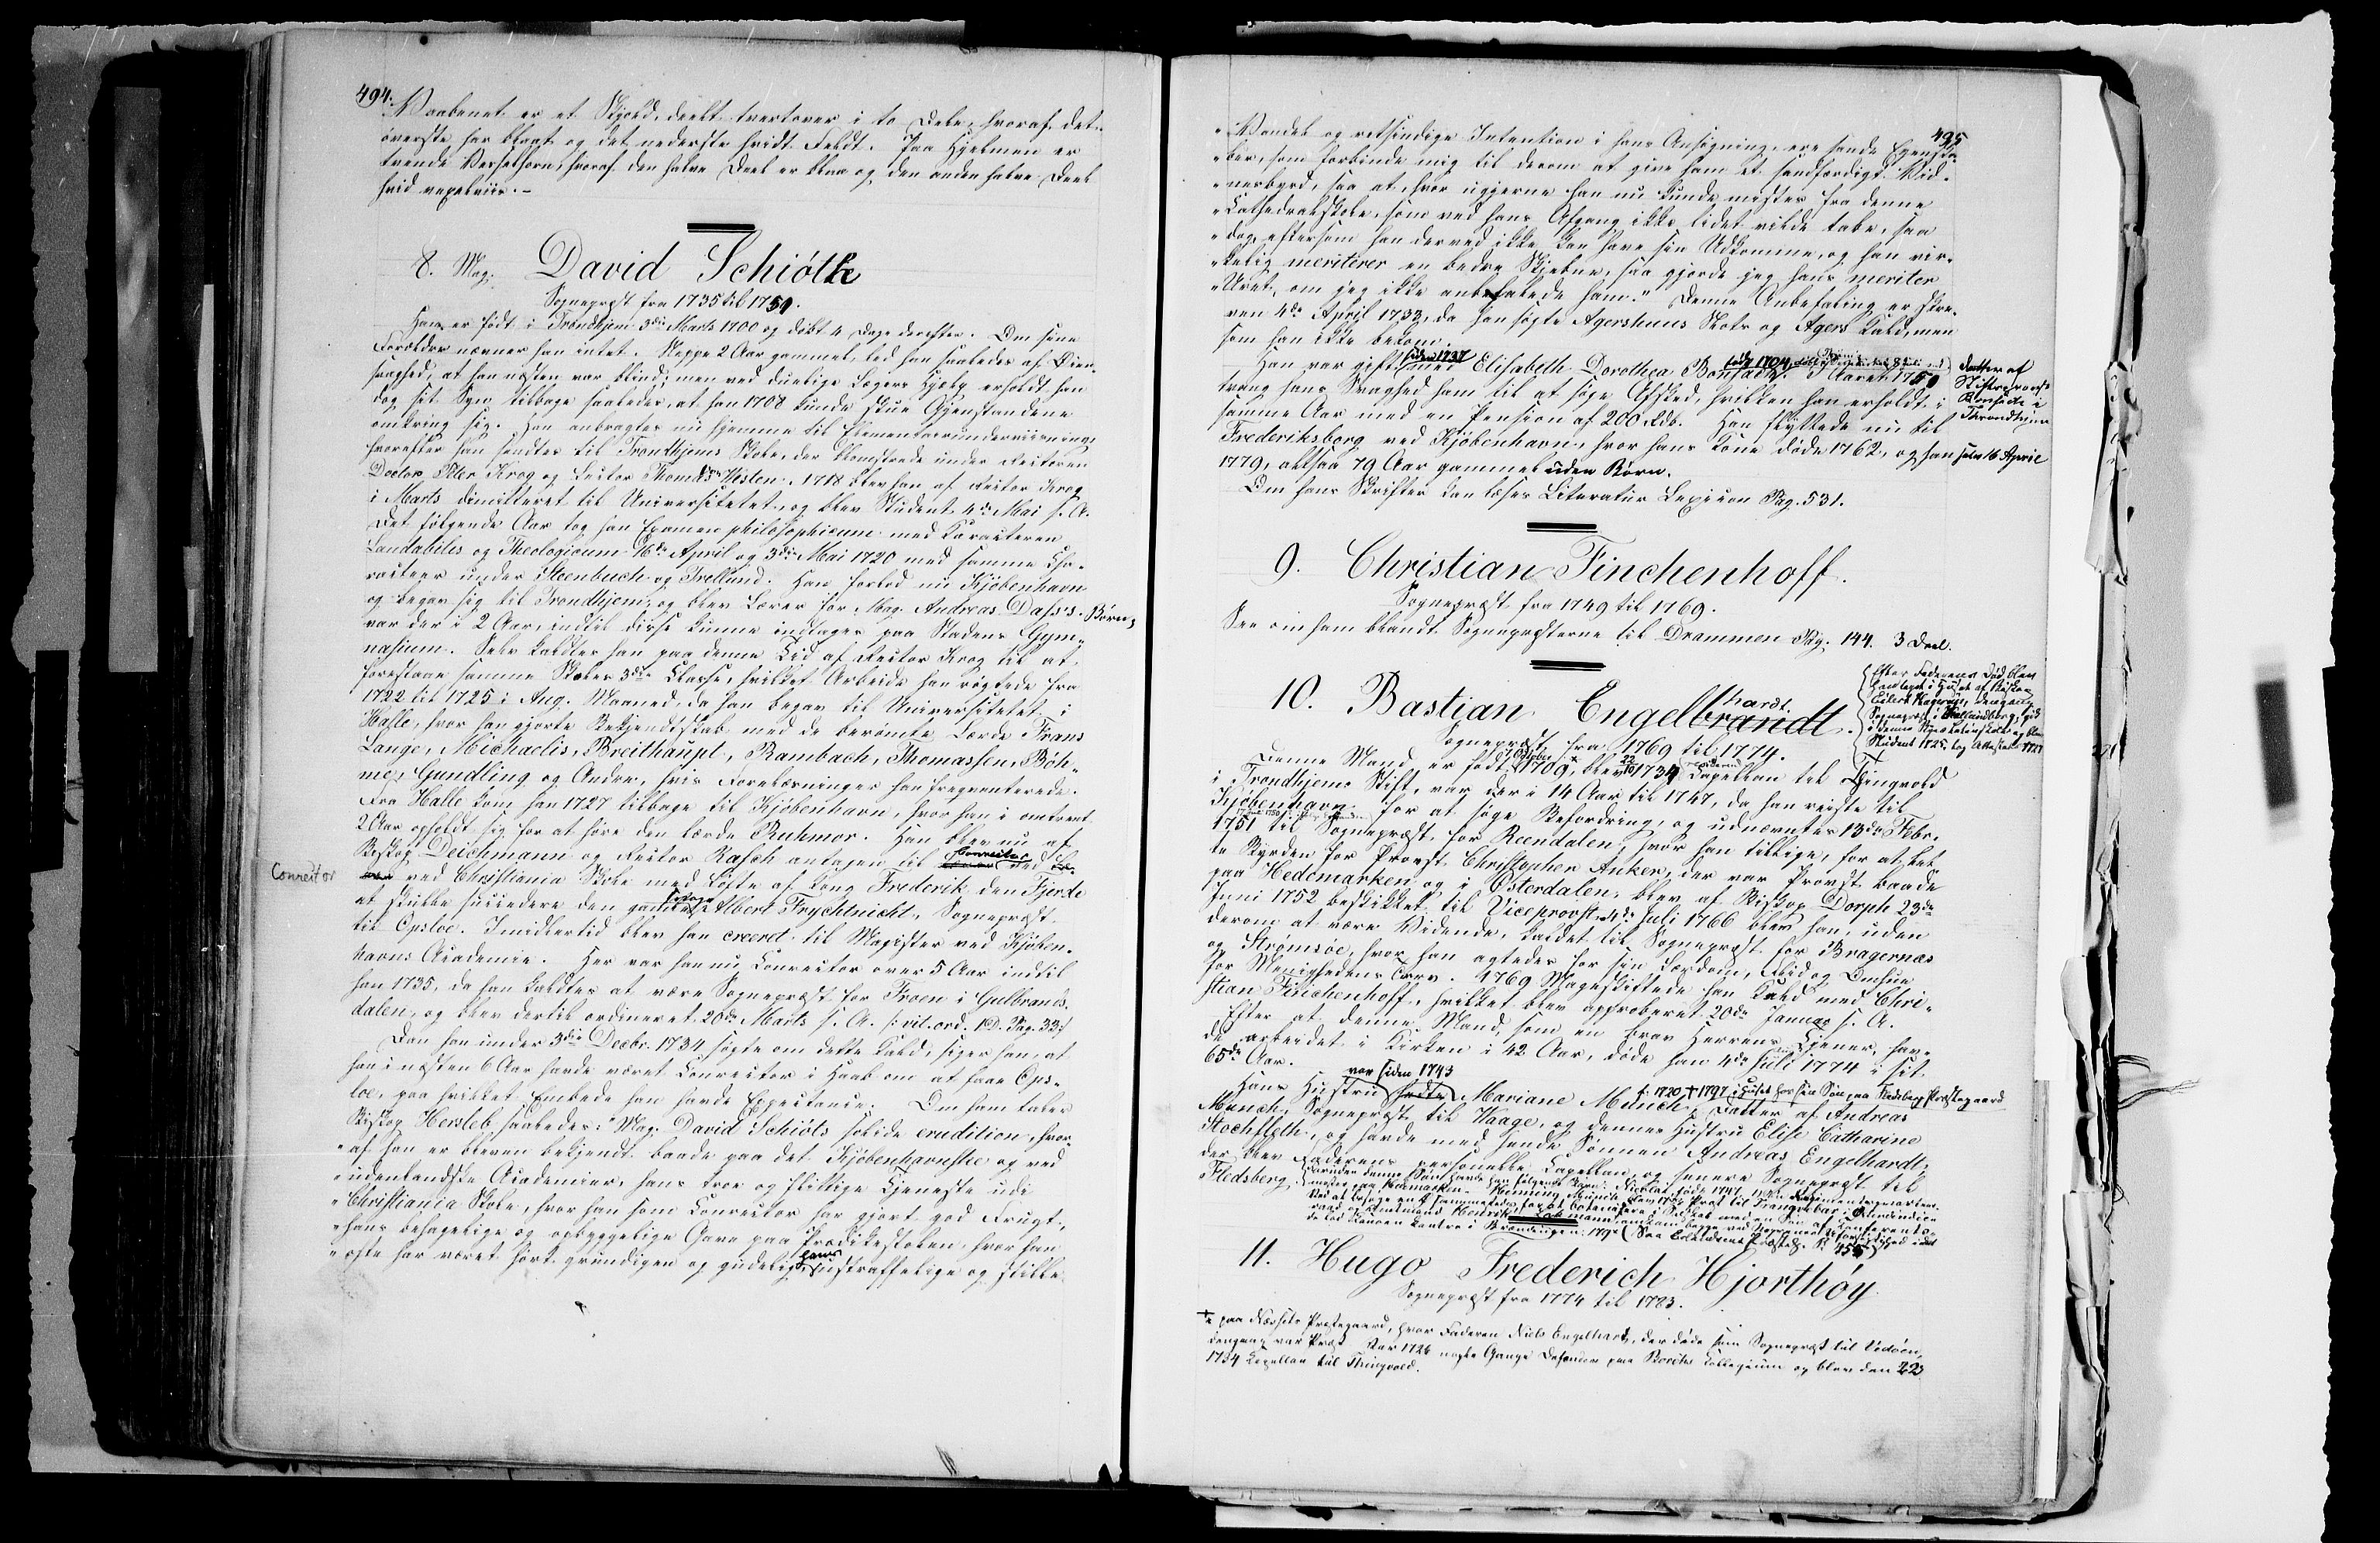 494.
Vaabenet er et Skjold, deelt tvertover i to Dele, hvoraf det
øverste har blaat og det nederste hvidt Feldt. Paa Hjelmen er
tvende Vesselhorn, hvoraf den halve Deel er blaa og den anden halve Deel
hvid vexelviis.-
8. Mag. David Schiöth
Sognepræst fra 1735 til 1750.
Han er født i Trondhjem 3die Marts 1700 og døbt 4 Dage derefter. Om sine
Forældre nævner han intet. Neppe 2 Aar gammel, led han saaledes af Øien-
svaghed, at han næsten var blind; men ved duelige Lægers Hjælp erholdt han
dog sit Syn tilbage saaledes, at han 1708 kunde skue Gjenstandene
omkring sig. Han anbragtes nu hjemme til Elementairunderviisning,
hvorefter han sendtes til Trondhjems Skole, der blomstrede under Rectoren
Doctor Peter Krog og Lector Thomas von Westen. 1718 blev han af Rector Krog
i Marts dimitteret til Universitetet, og blev Student 4de Mai s. A.
Det følgende Aar tog han Examen philosophicum med Caracteren
Laudabilis og Theologicum 16de April og 3die Mai 1720 med samme Cha-
racteer under Steenbuch og Trellund. Han forlod nu Kjøbenhavn
og begav sig til Trondhjem, og blev Lærer for Mag. Andreas Dass's Børn;
var der i 2 Aar, indtil disse kunne indtages paa Stadens Gym-
nasium. Selv kaldtes han paa denne Tid af Rector Krog til at
forestaae samme Skoles 3die Classe, hvilket Arbeide han røgtede fra
1722 til 1725 i Aug. Maaned, da han begav til Universitetet i
Halle, hvor han gjorte Bekjendtskab med de berømte Lærde Frans
Lange, Michaelis, Breithaupt, Rambach, Thomassen, Böh-
mer, Gundling og Andre, hvis Forelæsninger han frequenterede.
Fra Halle kom han 1727 tilbage til Kjøbenhavn, hvor han i omtrent
2 Aar opholdt sig for at høre den lærde Ruhmor. Han blev nu af
Biskop Deichmann og Rector Rasch antagen til Conrector
Conrector
ved Christiania Skole med Løfte af Kong Frederik den Fjerde
at skulle succedere den gamle svage Albert Frychtnicht, Sognepræst
til Opsloe. Imidlertid blev han creeret til Magister ved Kjøben-
havns Academie. Her var han nu Conrector over 5 Aar indtil
han 1735, da han kaldtes at være Sognepræst for Froen i Gulbrands-
dalen, og blev dertil ordineret 20de Marts s. A. /: vit. ord. 1 D. Pag. 33:/
Den han under 3die Decbr. 1734 søgte om dette Kald, siger han, at
han i næsten 6 Aar havde været Conrector i Haab om at faae Ops-
loe, paa hvilket Embede han havde Expectance. Om ham taler
Biskop Hersleb saaledes: "Mag. David Schiöts solide erudition, hvor-
"af han er bleven bekjendt baade paa det Kjøbenhavnske og ved
"udenlandske Academier, hans troe og flittige Tjeneste udi
"Christiania Skole, hvor han som Conrector har gjort god Frugt,
"hans behagelige og opbyggelige Gave paa Prædikestolen, hvor han
"ofte har været hørt grundigen og gudelig, hans ustraffelige og stille
495
"Vandel og retsindige Intention i hans Ansøgning, ere sande Egenska-
"ber, som forbinde mig til derom at give ham et sandfærdigt Vid-
"nesbyrd, saa at, hvor ugjerne han nu kunde mistes fra denne
"Cathedralskole, som ved hans Afgang ikke lidet vilde tabe, saa
"dog, eftersom han derved ikke kan have sin Udkomme, og han vir-
"kelig meriterer en bedre Skjebne, saa gjorde jeg hans meriter
"Uret, om jeg ikke anbefalede ham." Denne Anbefaling er skre-
ven 4de April 1733, da han søgte Agershuus Slots og Agers Kald, men
som han ikke bekom.
Han var gift siden 1737 med Elisabeth Dorothea Bonsach. I Aaret 1750
Datter af
Stiftsprovst
Bonsach i
Throndhjem
tvang hans Svaghed ham til at søge Afsked, hvilken han erholdt i
samme Aar med en Pension af 200 Rdl. Han flyttede nu til
Frederiksborg ved Kjøbenhavn, hvor hans Kone døde 1762, og han selv 16 April
1779, altsaa 79 Aar gammel uden Børn.
Om hans Skrifter kan læses Literatur Lexicon Pag. 531.
9. Christian Finchenhoff.
Sognepræst fra 1749 til 1769.
See om ham blandt Sognepræsterne til Drammen Pag. 144. 3 Deel.
10. Bastian Engelbrandt hardt.
Sognepræst fra 1769 til 1774.
Efter Faderens Død blev
han taget i Huset af Biskop
Eilert Hagerup, dengang
Sognepræst i Kallundborg, gik
i denne Byes Latinskole og blev
Student 1725. tog Attestats 1727
Denne Mand er født 1709, blev 1734 Capellan til Tingvold
i Trondhjems Stift, var der i 14 Aar til 1747, da han reiste til
Kjøbenhavn for at søge Befordring, og udnævntes 13de Febr.
1751 til Sognepræst for Reendalen, hvor han tillige, for at let-
te Byrden for Provst Christopher Anker, der var Provst baade
paa Hedemarken og i Østerdalen, blev af Biskop Dorph 23de
Juni 1752 beskikket til Viceprovst. 4de Juli 1766 blev han, uden
derom at være Vidende, kaldet til Sognepræst for Bragernæs
og Strømsøe, hvor han agtedes for sin Lærdom, Flid og Omhue
for Menighedens Tarv. 1769 Mageskiftede han Kald med Chri-
stian Finchenhoff, hvilket blev approberet 20de Januar s. A.
Efter at denne Mand, som en brav Herrens Tjener, hav-
de arbeidet i Kirken i 42 Aar, døde han 4de Juli 1774 i sit
65de Aar.
Hans Hustru var siden 1743 Mariane Munch, f. 1720 † 1797 i Huset hos sin Søn paa Fledsberg Præstegaard
Datter af Andreas
Munch, Sognepræst til Vaage, og dennes Hustru Elise Catharine
Hochfleth, og havde med hende Sønnen Andreas Engelhardt,
der blev Faderens personelle Capellan og senere Sognepræst til
Fledsberg.
11. Hugo Frederich Hjorthöy
Sognepræst fra 1774 til 1783.
+ paa Næssets Præstegaard, hvor Faderen Niels Engelhardt, der døde som Sognepræst til Vedøen,
dengang var Præst. Var 1726 nogle Gange Defendens paa Borchs Collegium og blev den 22
1734 Capellan til Thingvold.